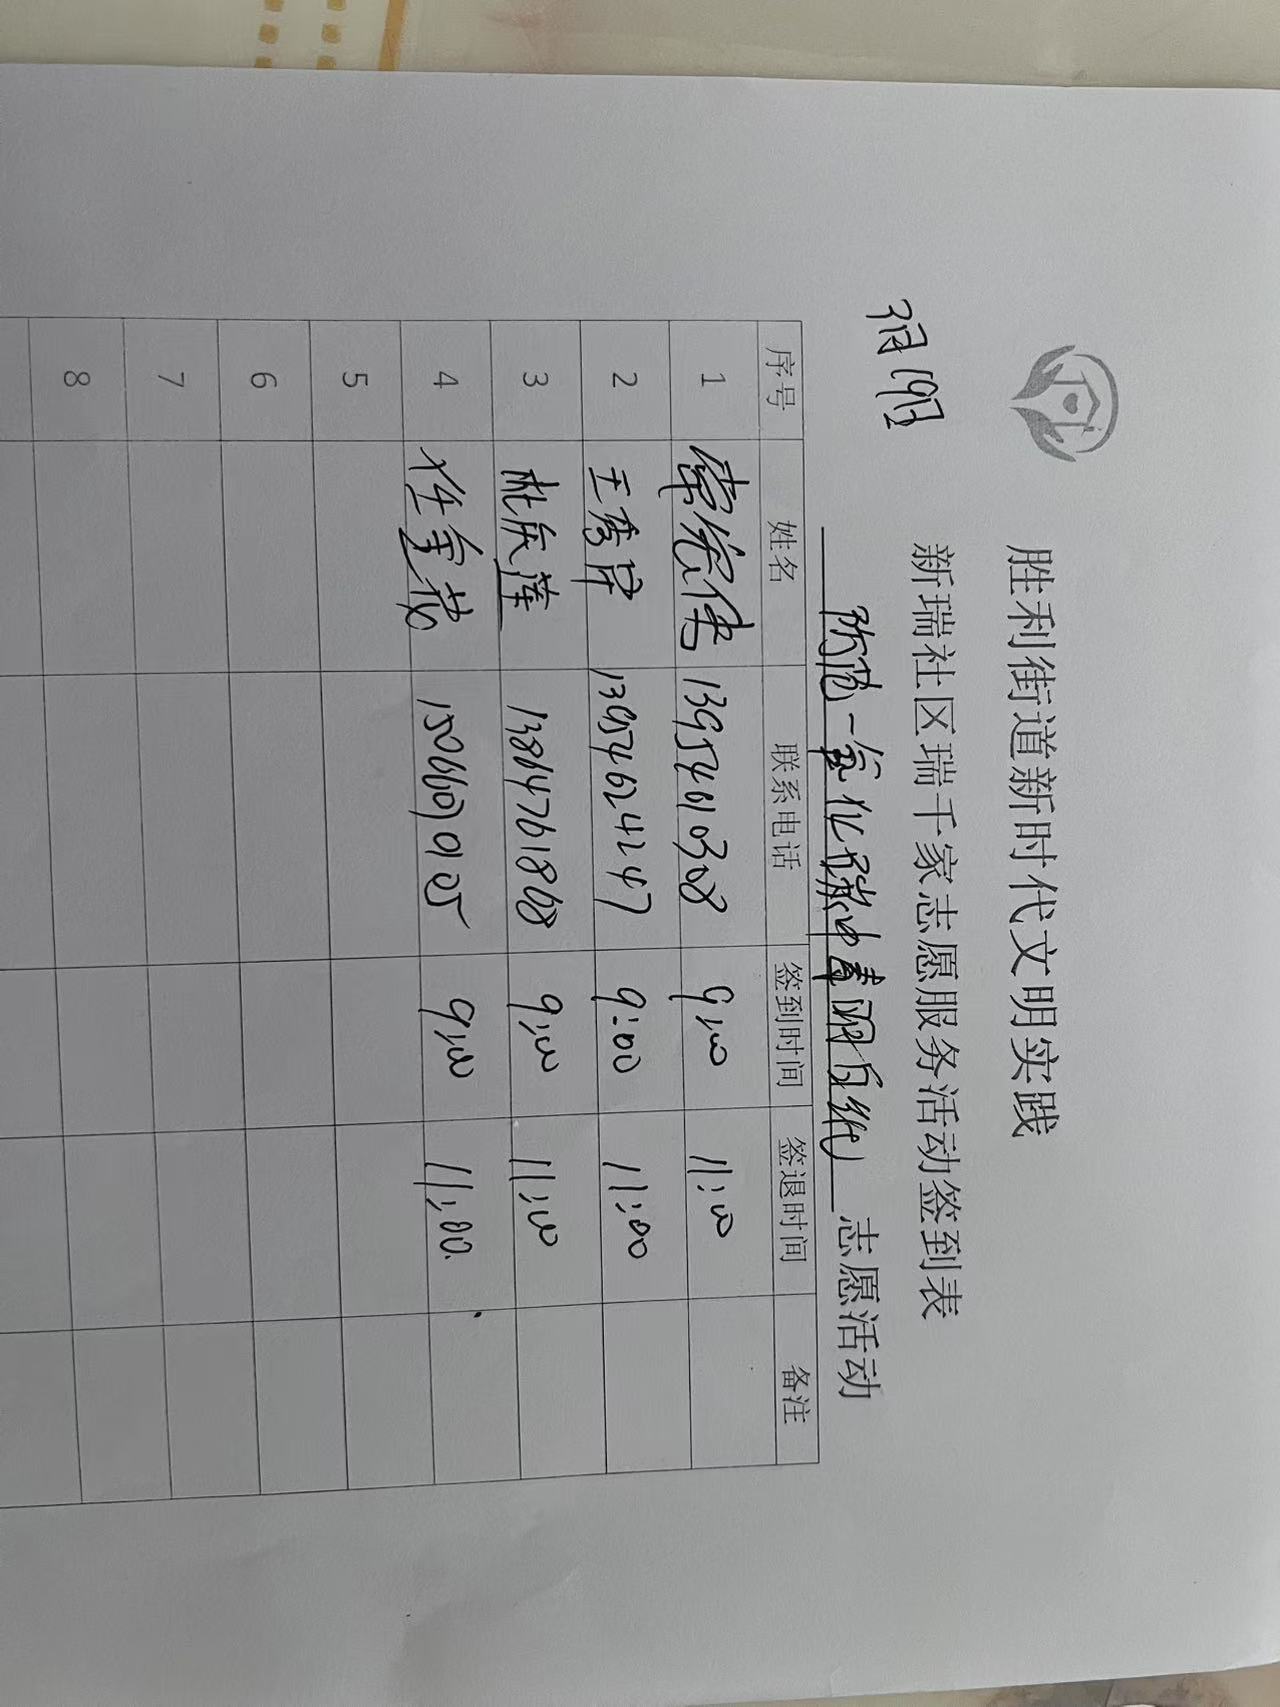 胜利街道新时代文明实践
新瑞社区瑞千家志愿服务活动签到表
3月19日 志愿活动
序号 姓名 联系电话 签到时间 签退时间 备注
1 13954610308 9:00 11:00
2 王秀 13954624247 9:00 11:00
3 杜庆莲 13864761868 9:00 11:00
4 任金花 9:00 11:00
5
6
7
8